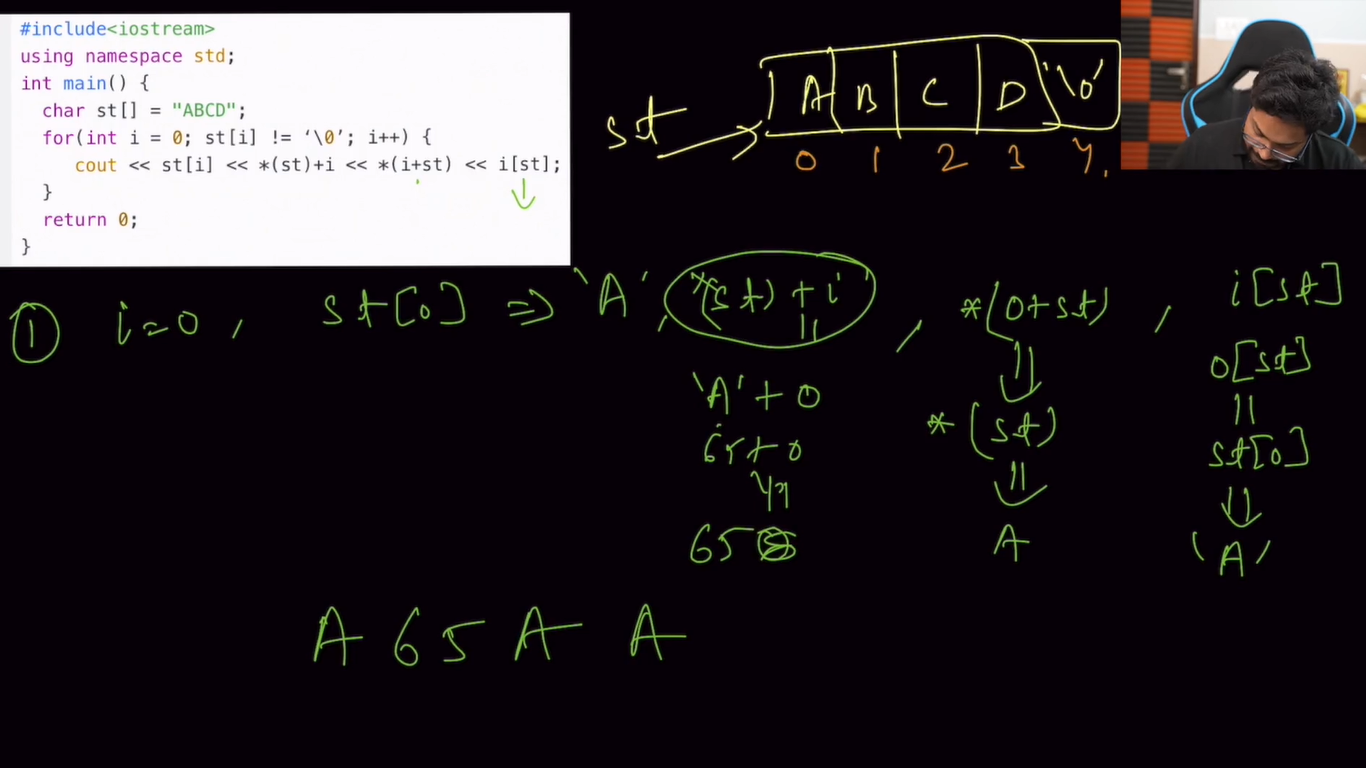 #include<iostream>
using namespace std;
int main() {
char st[] = "ABCD";
for(int i = 0; st[i] != ‘\0’; i++) {
cout << st[i] << *(st)+i << *(i+st) << i[st];
}
return 0;
}
st A B C D '\0'
0 1 2 3 4.
① i=0, st[0] ⇒ 'A', *(st)+i, *(0+st), i[st]
'A'+0 *(st) 0[st]
65+0 st[0]
65 A 'A'
A 65 A A